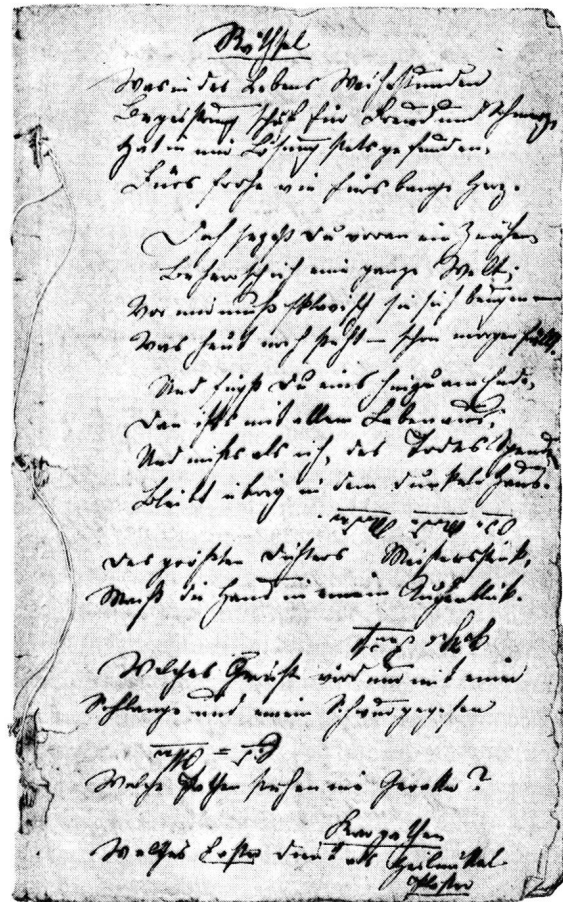 Räthsel
Was in des Lebens Weihestunden
Begeistrung schuf für Freud und Schmerz,
Hat in mir Lösung stets gefunden,
Fürs frohe wie fürs bange Herz.
Doch setzest du voran ein Zeichen
Beherrsch ich eine ganze Welt;
Vor mir muß sklavisch sie sich beugen —
Was heut noch steht — schon morgen fällt.
Und fügst du eins hinzu am Ende,
Dan ists mit allem Leben aus;
Und nichts als ich, des Todes Spende
Bleibt übrig in dem dunkeln Haus.
Ode. Mode. Moder.
Des größten Dichters Meisterstück,
Macht die Hand in einem Augenblick.
Faust
Welches Gericht wird nur mit einer
Schlange und einem Schwur gegessen
Eid = Otter
Welche Pathen stehen nie Gevatter?
Karpathen
Welches Laster dient als Heilmittel
Pflaster